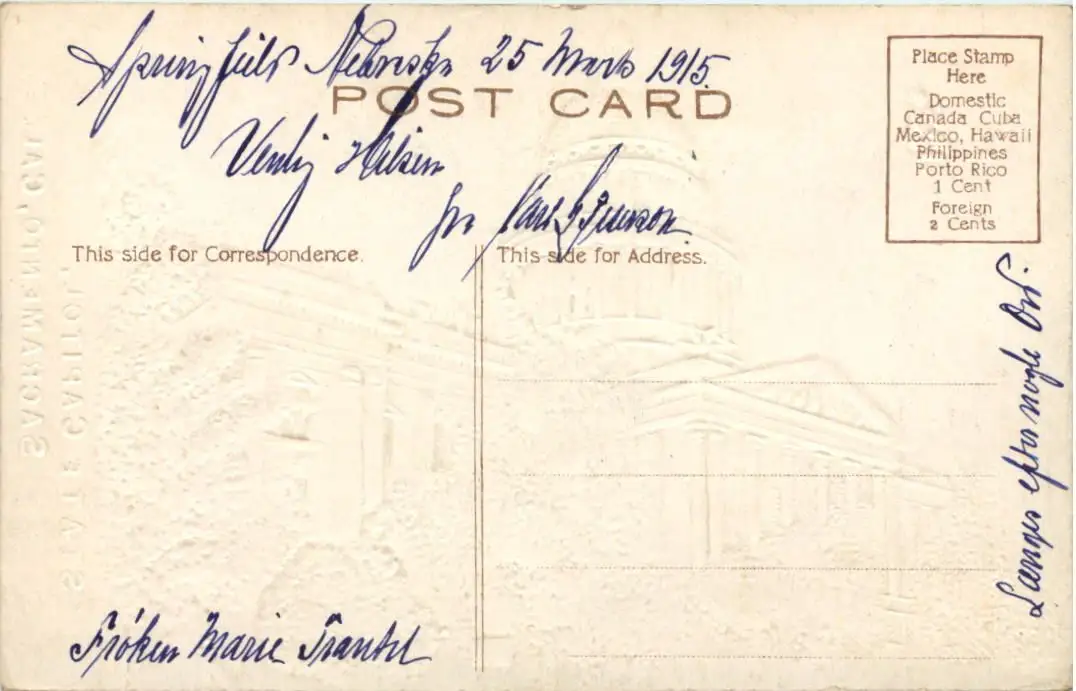 Springfield Nebraska 25 Marts 1915
POST CARD
Venlig Hilsen
fra Karl
This side for Correspondence.
This side for Address.
Place Stamp
Here
Domestic
Canada Cuba
Mexico, Hawaii
Philippines
Porto Rico
1 Cent
Foreign
2 Cents
Længes efter nogle Ord.
Frøken Marie
STATE CAPITOL,
SACRAMENTO, CAL.